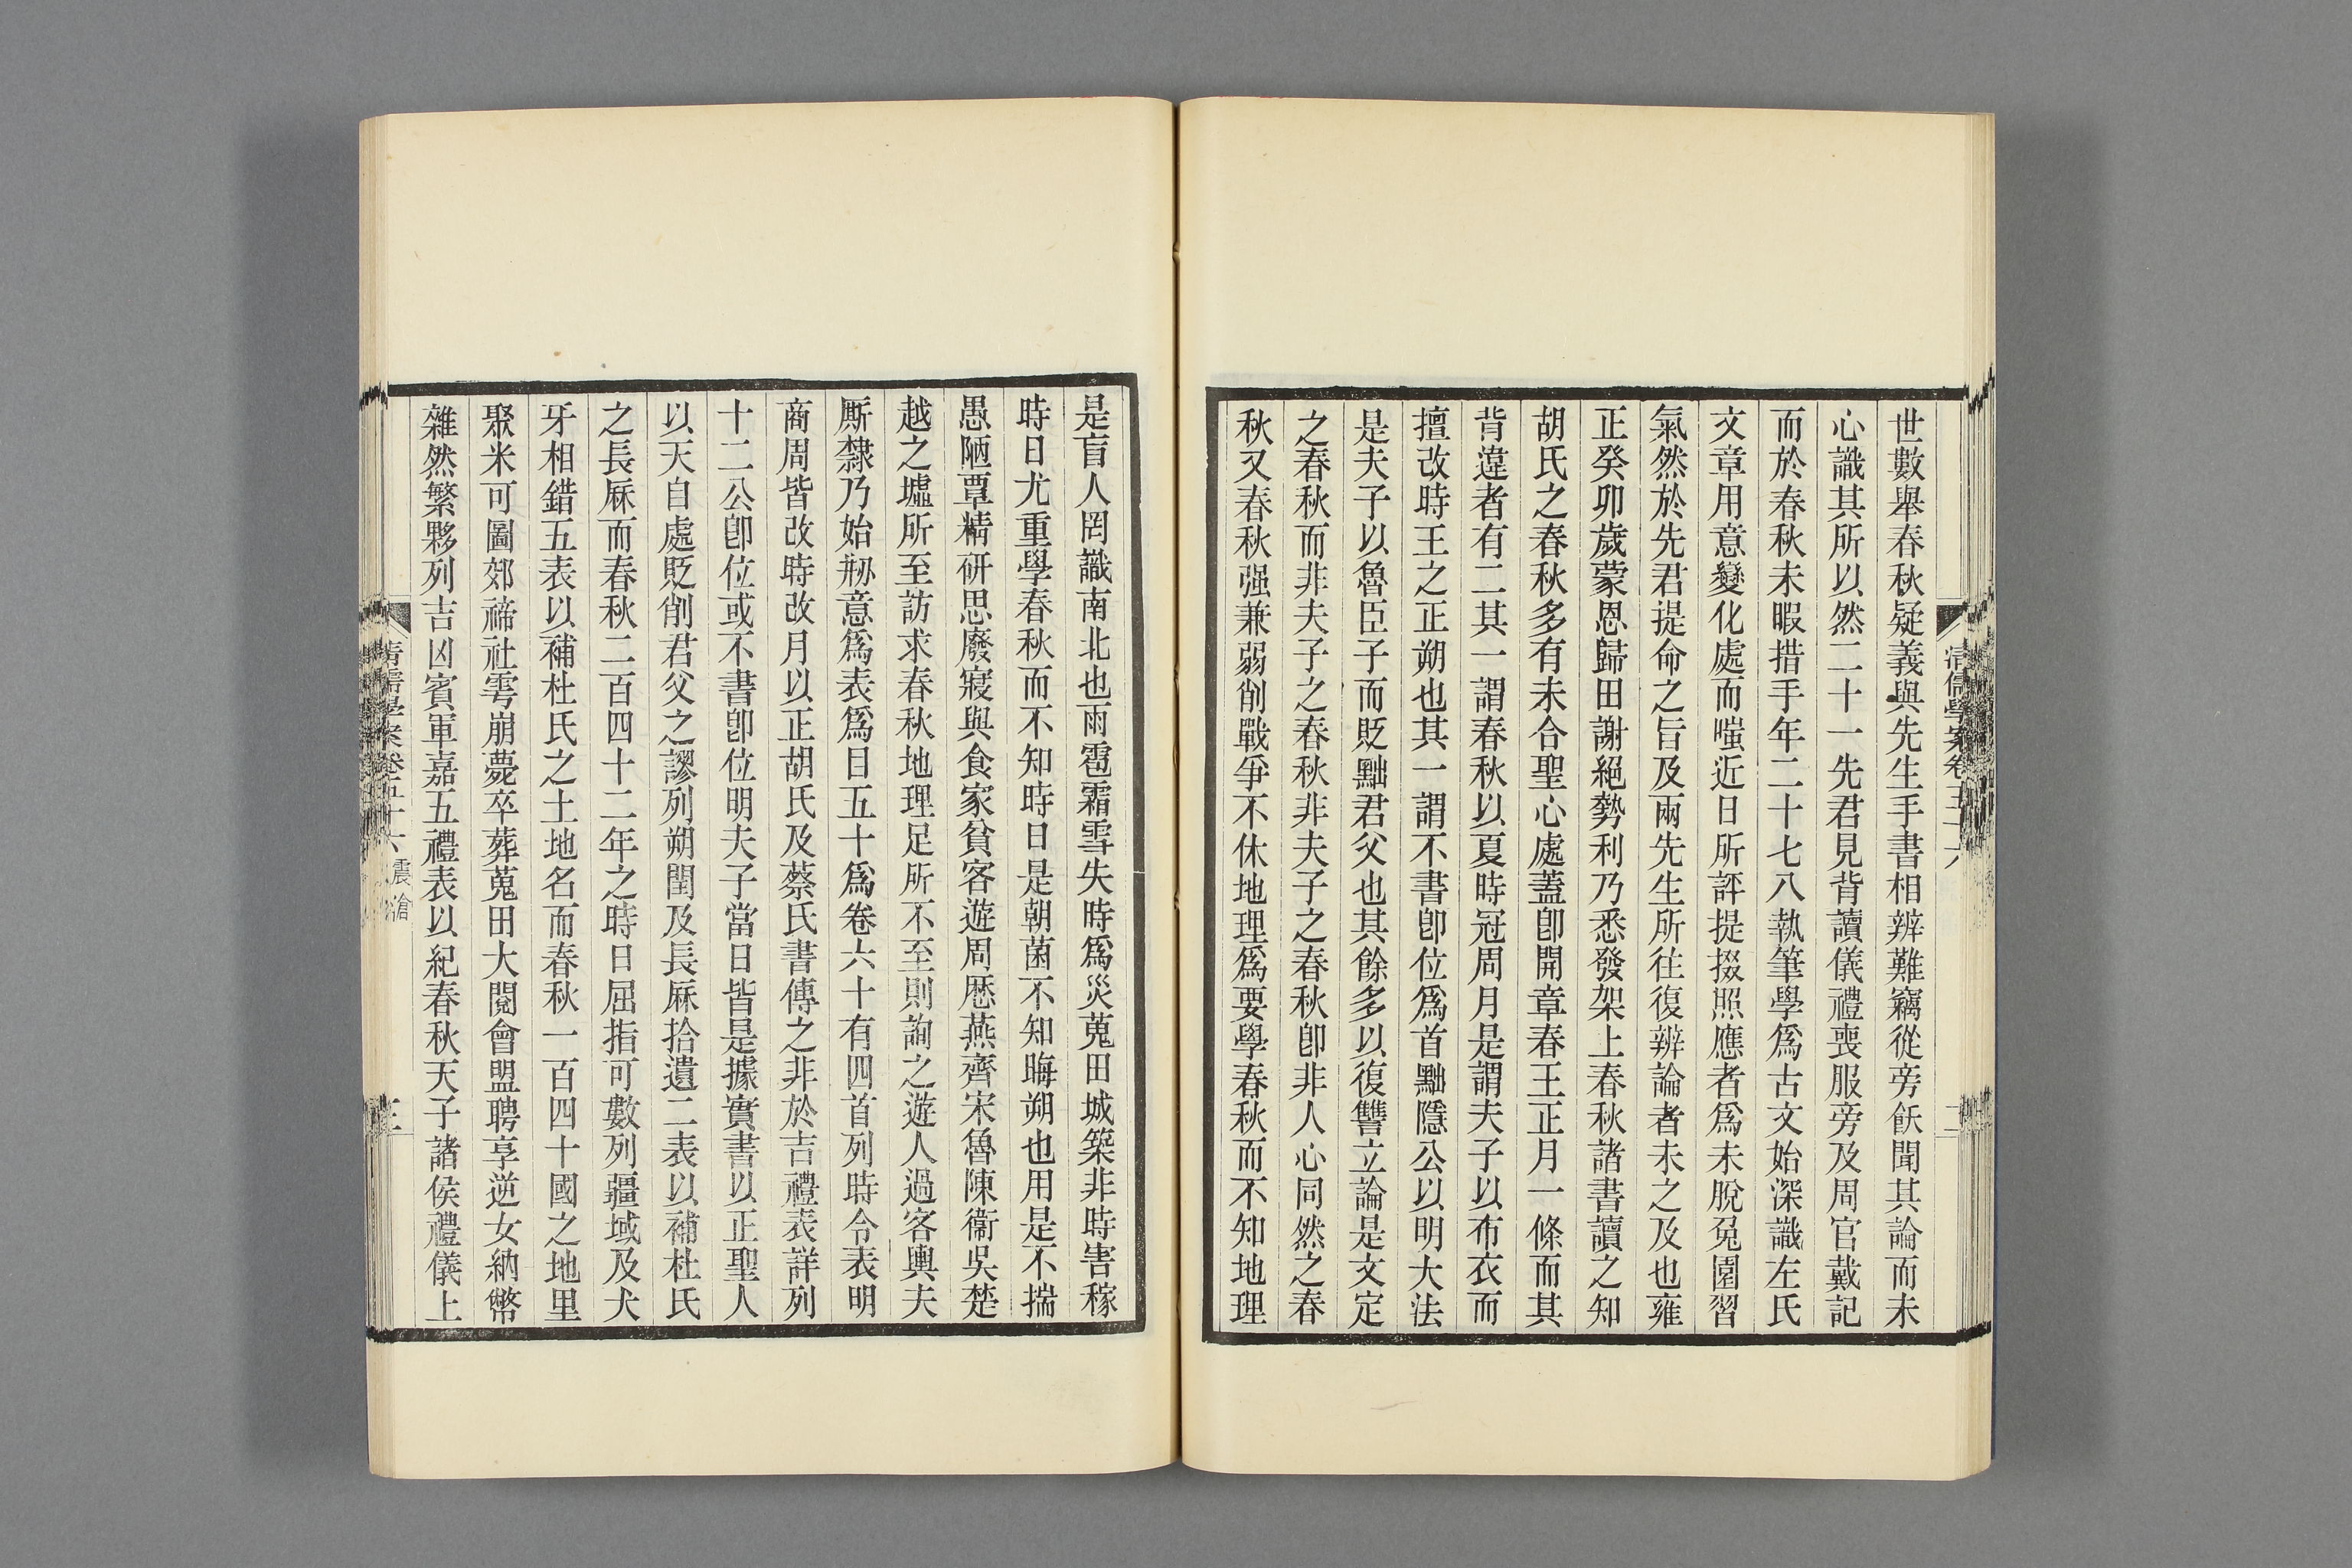 世數舉春秋疑義與先生手書相辨難竊從旁飫聞其論而未
心識其所以然二十一先君見背讀儀禮喪服旁及周官戴記
而於春秋未暇措手年二十七八執筆學爲古文始深識左氏
文章用意變化處而嗤近日所評提掇照應者爲未脫兔園習
氣然於先君提命之旨及兩先生所往復辨論者未之及也雍
正癸卯歲蒙恩歸田謝絕勢利乃悉發架上春秋諸書讀之知
胡氏之春秋多有未合聖心處蓋卽開章春王正月一條而其
背違者有二其一謂春秋以夏時冠周月是謂夫子以布衣而
擅改時王之正朔也其一謂不書卽位爲首黜隱公以明大法
是夫子以魯臣子而貶黜君父也其餘多以復讐立論是文定
之春秋而非夫子之春秋非夫子之春秋卽非人心同然之春
秋又春秋强兼弱削戰爭不休地理爲要學春秋而不知地理
是盲人罔識南北也雨雹霜雪失時爲災蒐田城築非時害稼
時日尤重學春秋而不知時日是朝菌不知晦朔也用是不揣
愚陋覃精研思廢寢與食家貧客遊周厯燕齊宋魯陳衞吳楚
越之墟所至訪求春秋地理足所不至則詢之遊人過客輿夫
厮隸乃始刱意爲表爲目五十爲卷六十有四首列時令表明
商周皆改時改月以正胡氏及蔡氏書傳之非於吉禮表詳列
十二公卽位或不書卽位明夫子當日皆是據實書以正聖人
以天自處貶削君父之謬列朔閏及長厤拾遺二表以補杜氏
之長厤而春秋二百四十二年之時日屈指可數列疆域及犬
牙相錯五表以補杜氏之土地名而春秋一百四十國之地里
聚米可圖郊禘社雩崩薨卒葬蒐田大閱會盟聘享逆女納幣
雜然繁夥列吉凶賓軍嘉五禮表以紀春秋天子諸侯禮儀上
清儒學案卷五十六 震滄
清儒學案卷五十六